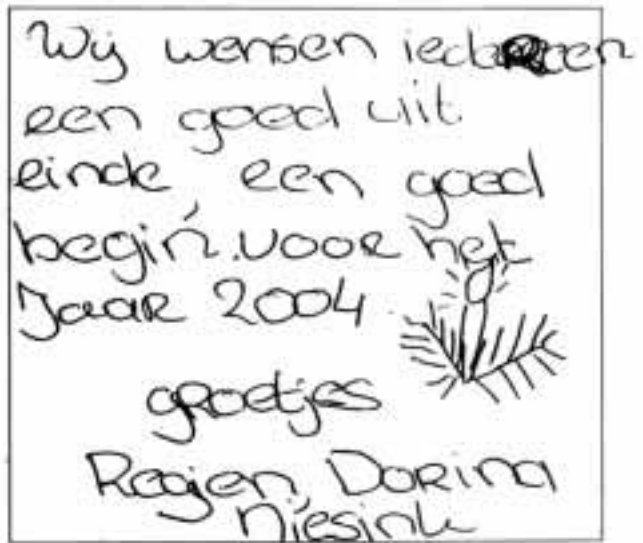 Wij wensen iedereen
een goed uit
einde, een goed
begin. voor het
Jaar 2004
groetjes
Rogier, Dorina
Niesink